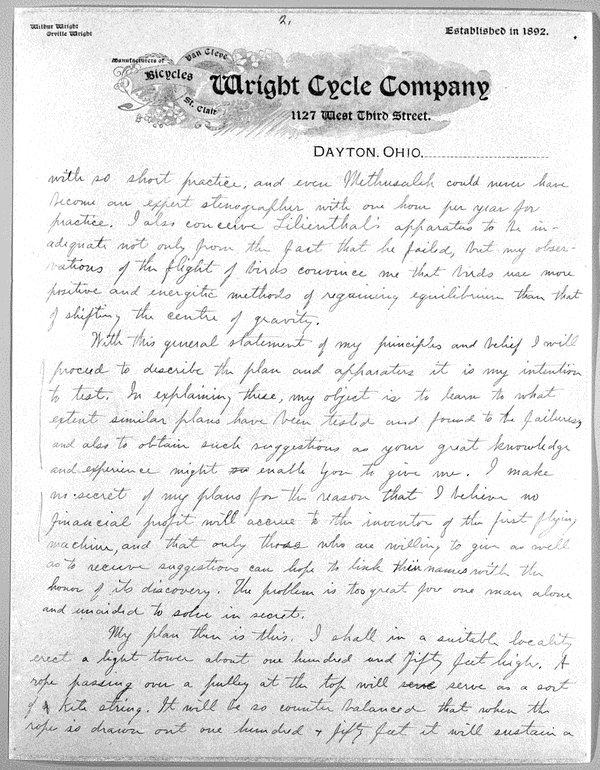 2.
Wilbur Wright
Orville Wright
Established in 1892.
Manufacturers of
Bicycles
Van Cleve
St. Clair
Wright Cycle Company
1127 West Third Street.
DAYTON, OHIO,
with so short practice, and even Methusaleh could never have
become an expert stenographer with one hour per year for
practice. I also conceive Lilienthal's apparatus to be in-
adequate not only from the fact that he failed, but my obser-
vations of the flight of birds convince me that birds use more
positive and energetic methods of regaining equilibrium than that
of shifting the centre of gravity.
With this general statement of my principles and belief I will
proceed to describe the plan and apparatus it is my intention
to test. In explaining these, my object is to learn to what
extent similar plans have been tested and found to be failures,
and also to obtain such suggestions as your great knowledge
and experience might enable you to give me. I make
no secret of my plans for the reason that I believe no
financial profit will accrue to the inventor of the first flying
machine, and that only those who are willing to give as well
as to receive suggestions can hope to link their names with the
honor of its discovery. The problem is too great for one man alone
and unaided to solve in secret.
My plan then is this. I shall in a suitable locality
erect a light tower about one hundred and fifty feet high. A
rope passing over a pulley at the top will serve as a sort
of kite string. It will be so counter balanced that when the
rope is drawn out one hundred & fifty feet it will sustain a